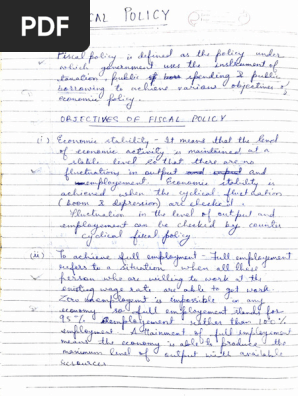 PDF
FISCAL POLICY
Fiscal policy is defined as the policy under
which government uses the instrument of
taxation, public spending & public
borrowing to achieve various objectives of
economic policy.
OBJECTIVES OF FISCAL POLICY
(i) Economic stability - It means that the level
of economic activity is maintained at a
stable level so that there are no
fluctuations in output and
unemployement. Economic stability is
achieved when the cyclical fluctuation
(boom & depression) are checked.
Fluctuation in the level of output and
employement can be checked by counter
cyclical fiscal policy.
(ii) To achieve full employment - Full employement
refers to a situation when all those
person who are willing to work at the
existing wage rate are able to get work.
Zero unemployment is impossible in any
economy so full employement stands for
95% employement rather than 100%
employment. Attainment of full employement
means the economy is able to produce the
maximum level of output with available
resources